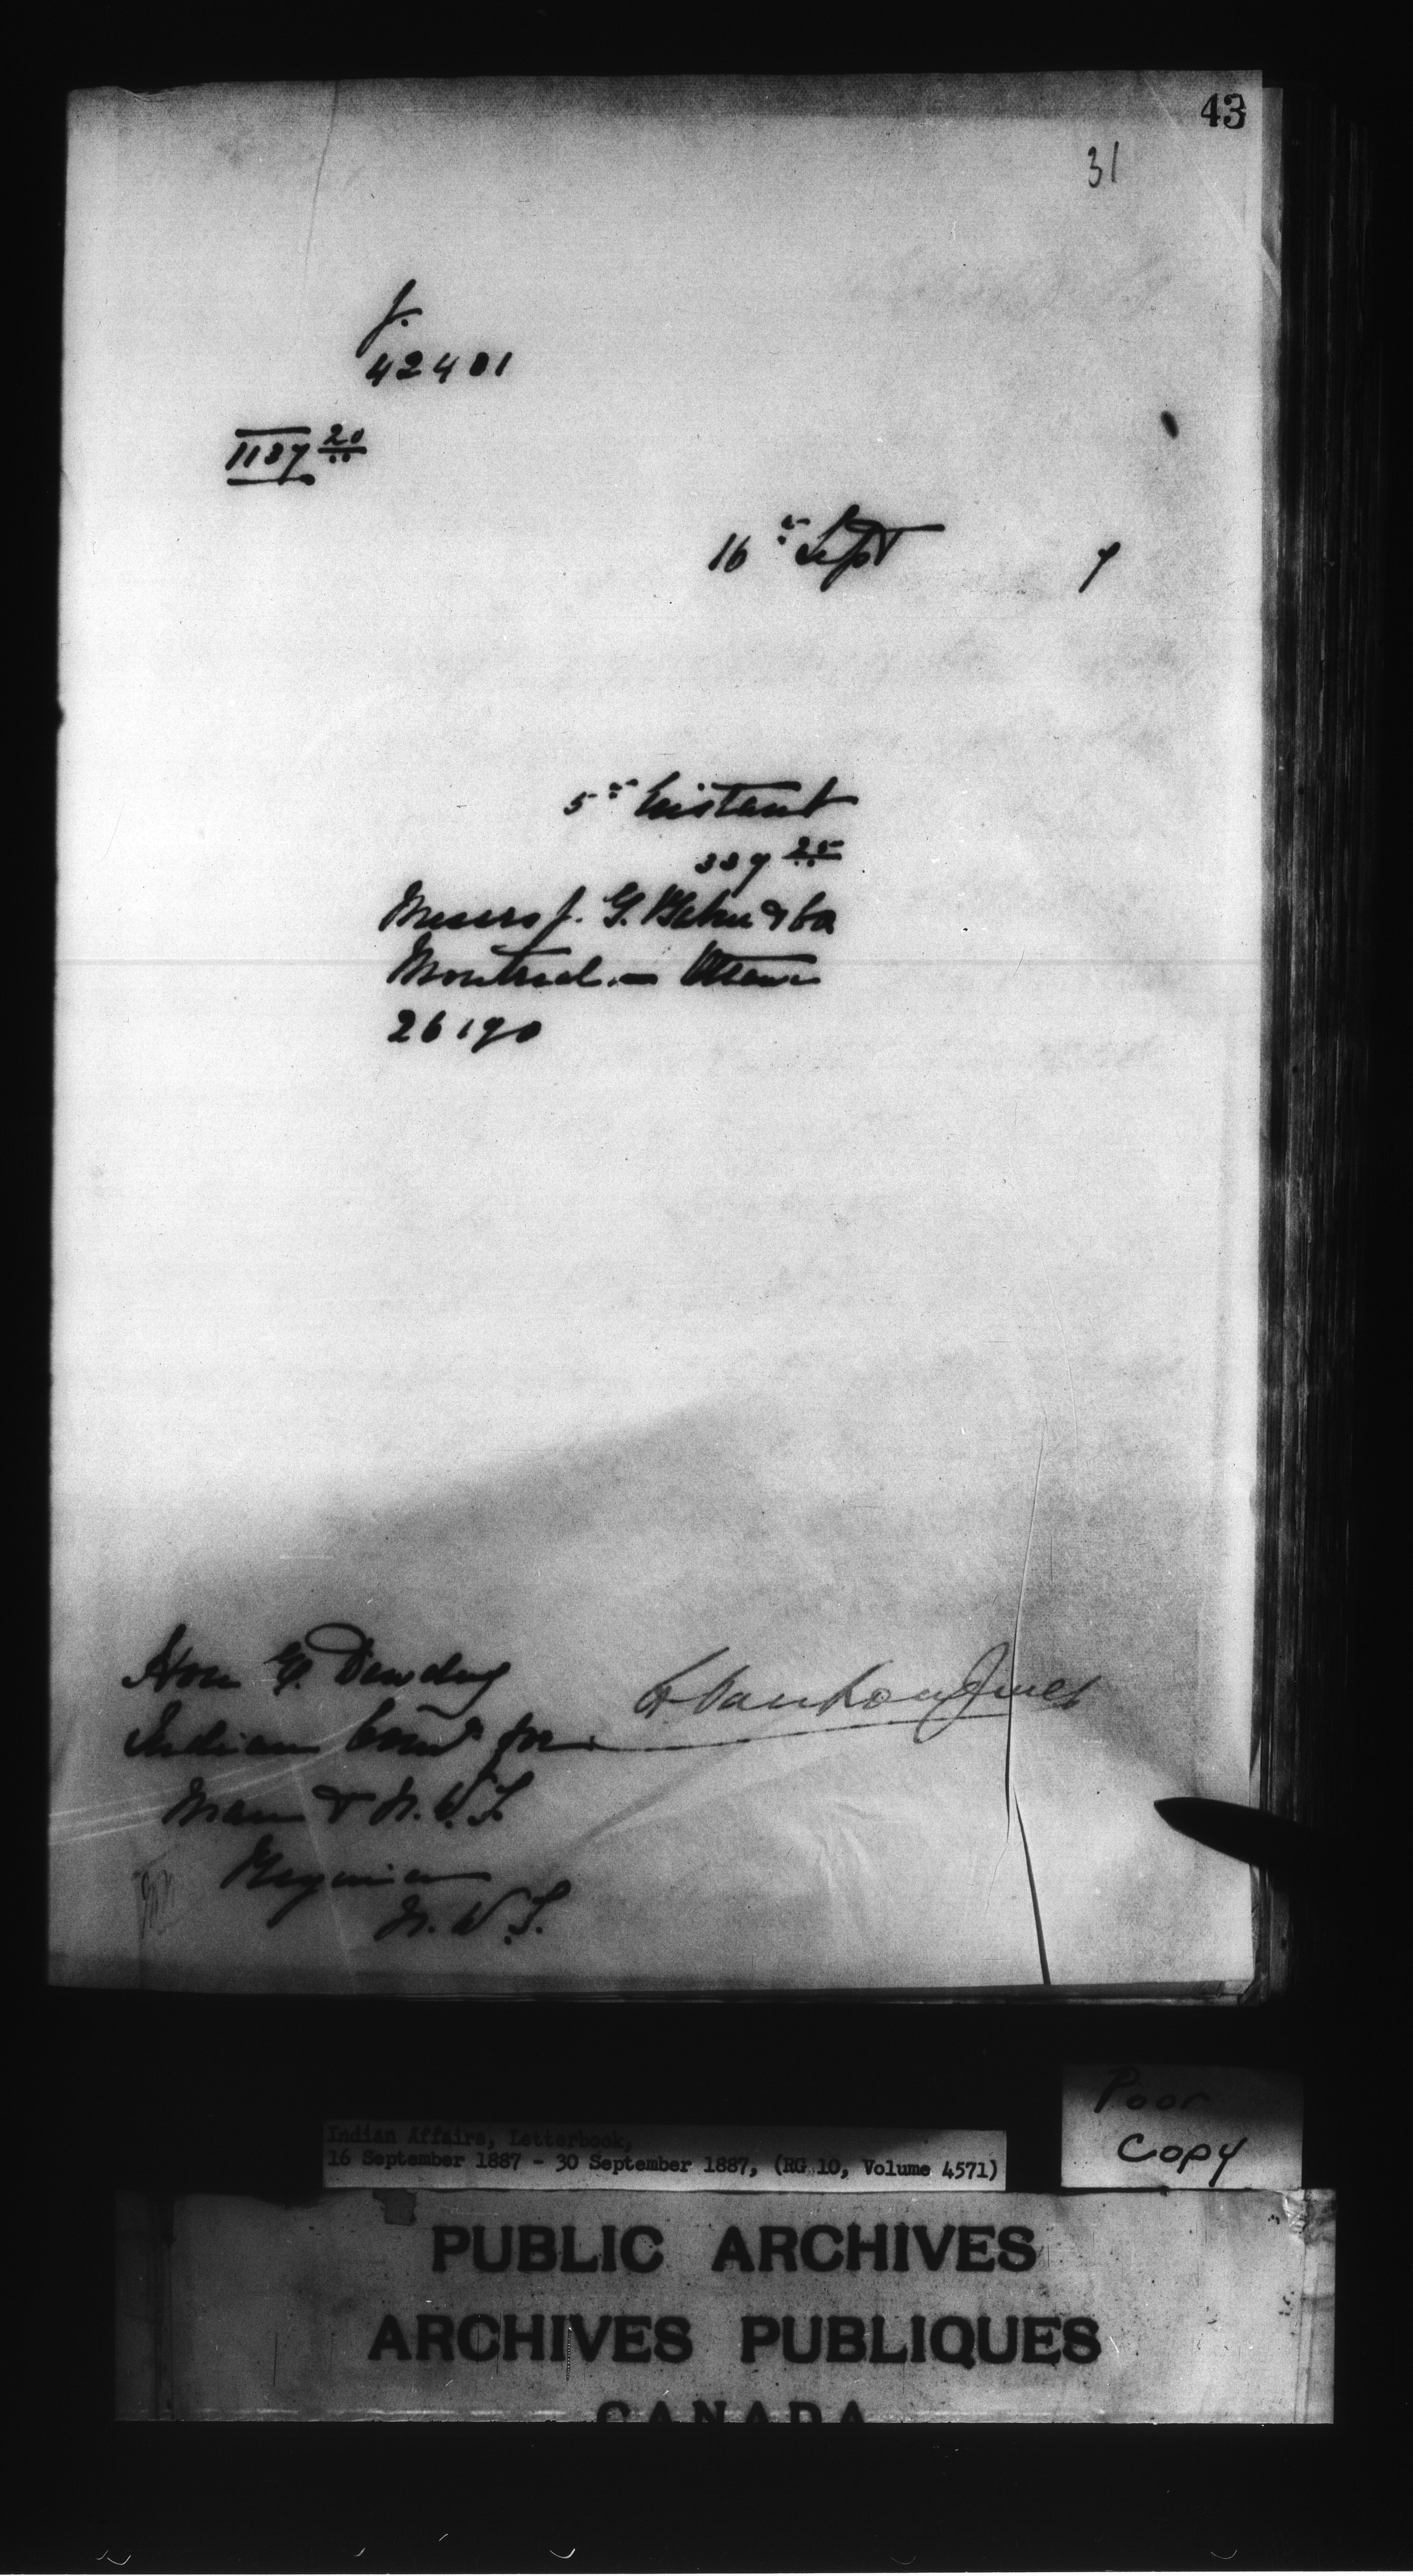 43
31
J.
42401
1137 20
16th Sept 7
5th Instant
337 25
Messrs J. G. Baker & Co
Montreal. — Ottawa
26190
Hon E. Dewdney
L. Vankoughnet
Indian Comr for
Man & N.W.T.
Regina
N.W.T.
Poor
Copy
Indian Affairs, Letterbook,
16 September 1887 - 30 September 1887, (RG 10, Volume 4571)
PUBLIC ARCHIVES
ARCHIVES PUBLIQUES
CANADA